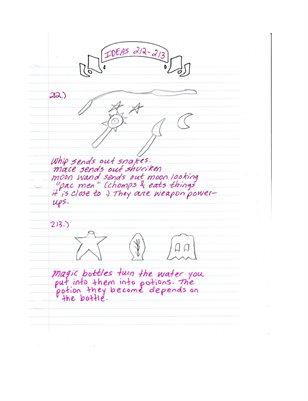 IDEAS 212-213
212.)
Whip sends out snakes.
mace sends out shuriken
moon wand sends out moon looking
"pac men" (chomps & eats things
it is close to :) They are weapon power-
ups.
213.)
magic bottles turn the water you
put into them into potions. The
potion they become depends on
the bottle.